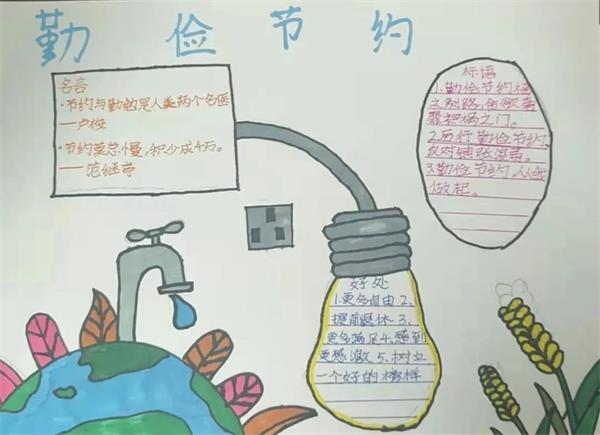 勤俭节约
名言
·节约与勤勉是人类两个名医
—卢梭
·节约莫怠慢,积少成千万。
——范继亭
标语
1.勤俭节约福
之别路,
罪把祸之门。
2.厉行勤俭节约,
反对铺张浪费。
3.勤俭节约,从我
做起。
好处
1.更多自由2、
提前退休3、
更多满足4.感到
更感激5.树立
一个好的榜样